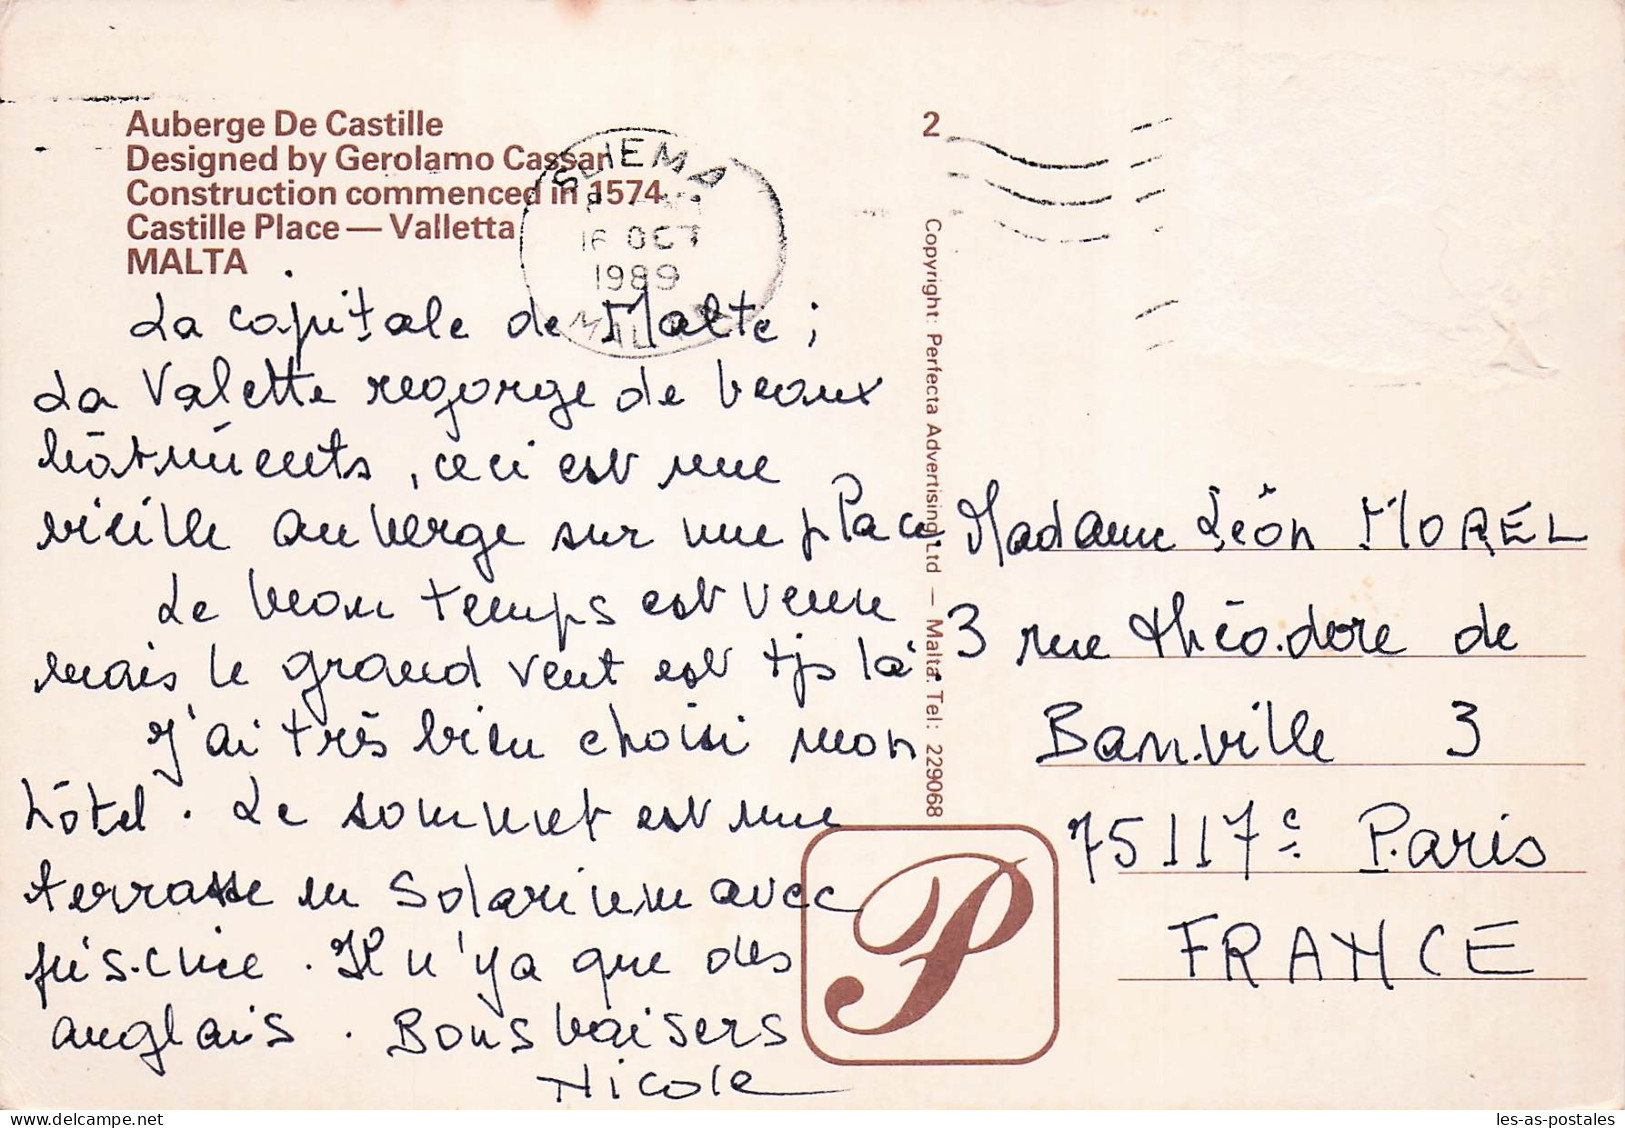 Auberge De Castille
Designed by Gerolamo Cassar
Construction commenced in 1574
Castille Place — Valletta
MALTA
SLIEMA
16 OCT
1989
MALTA
La capitale de Malte ;
La Valette regorge de beaux
bâtiments, ceci est une
vieille auberge sur une place
Le beau temps est venu
mais le grand vent est tjs là
J'ai très bien choisi mon
hôtel. Le sommet est une
terrasse en solarium avec
piscine. Il n'y a que des
anglais. Bons baisers
Nicole
2
Copyright: Perfecta Advertising Ltd — Malta. Tel: 229068
Madame Léon MOREL
3 rue théodore de
Banville 3
75117e Paris
FRANCE
P
les-as-postales